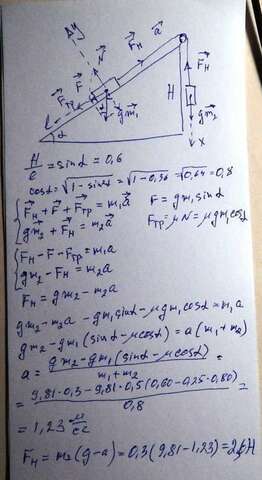 Y
N⃗
F⃗н
a⃗
F⃗
F⃗тр
gm⃗₁
l
α
H
F⃗н
gm⃗₂
x
H/l = sinα = 0,6
cosα = √(1-sin²α) = √(1-0,36) = √0,64 = 0,8
{ F⃗н + F⃗ + F⃗тр = m₁a⃗
F = gm₁sinα
gm⃗₂ + F⃗н = m₂a⃗
Fтр = μN = μgm₁cosα
{ Fн - F - Fтр = m₁a
gm₂ - Fн = m₂a
Fн = gm₂ - m₂a
gm₂ - m₂a - gm₁sinα - μgm₁cosα = m₁a
gm₂ - gm₁(sinα - μcosα) = a(m₁+m₂)
a = (gm₂ - gm₁(sinα - μcosα))/(m₁+m₂) =
= (9,81·0,3 - 9,81·0,5(0,60 - 0,25·0,80))/0,8 =
= 1,23 м/с²
Fн = m₂(g-a) = 0,3(9,81-1,23) = 2,6Н